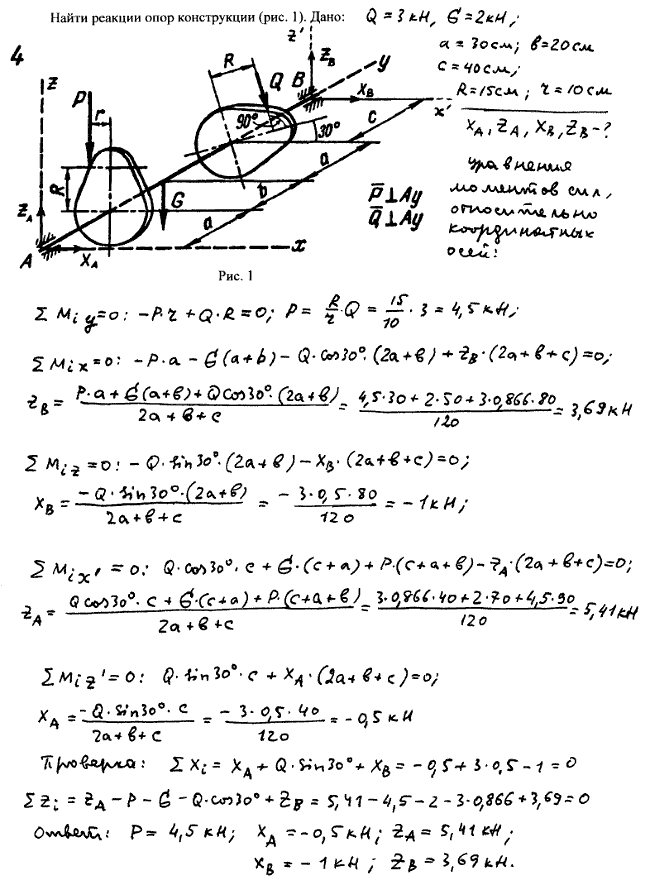 Найти реакции опор конструкции (рис. 1). Дано: Q = 3 кН, G = 2 кН;
a = 30 см; b = 20 см
c = 40 см;
R = 15 см; r = 10 см
X_A, Z_A, X_B, Z_B - ?
уравнения
моментов сил,
относительно
координатных
осей:
P̅ ⊥ Ay
Q̅ ⊥ Ay
4
z
P
r
R
Z_A
A
X_A
x
G
a
b
a
c
R
Q
90°
30°
B
Z_B
z'
X_B
x'
y
Рис. 1
Σ M_iy = 0: -P·r + Q·R = 0; P = R/r · Q = 15/10 · 3 = 4,5 кН;
Σ M_ix = 0: -P·a - G(a+b) - Q·cos30°·(2a+b) + Z_B·(2a+b+c) = 0;
Z_B = (P·a + G(a+b) + Q cos30°·(2a+b))/(2a+b+c) = (4,5·30 + 2·50 + 3·0,866·80)/120 = 3,69 кН
Σ M_iz = 0: -Q·sin30°·(2a+b) - X_B·(2a+b+c) = 0;
X_B = (-Q·sin30°·(2a+b))/(2a+b+c) = - (3·0,5·80)/120 = -1 кН;
Σ M_ix' = 0: Q·cos30°·c + G·(c+a) + P·(c+a+b) - Z_A·(2a+b+c) = 0;
Z_A = (Q cos30°·c + G·(c+a) + P·(c+a+b))/(2a+b+c) = (3·0,866·40 + 2·70 + 4,5·90)/120 = 5,41 кН
Σ M_iz' = 0: Q·sin30°·c + X_A·(2a+b+c) = 0;
X_A = (-Q·sin30°·c)/(2a+b+c) = - (3·0,5·40)/120 = -0,5 кН
Проверка: Σ X_i = X_A + Q·sin30° + X_B = -0,5 + 3·0,5 - 1 = 0
Σ Z_i = Z_A - P - G - Q·cos30° + Z_B = 5,41 - 4,5 - 2 - 3·0,866 + 3,69 = 0
Ответ: P = 4,5 кН; X_A = -0,5 кН; Z_A = 5,41 кН;
X_B = -1 кН; Z_B = 3,69 кН.